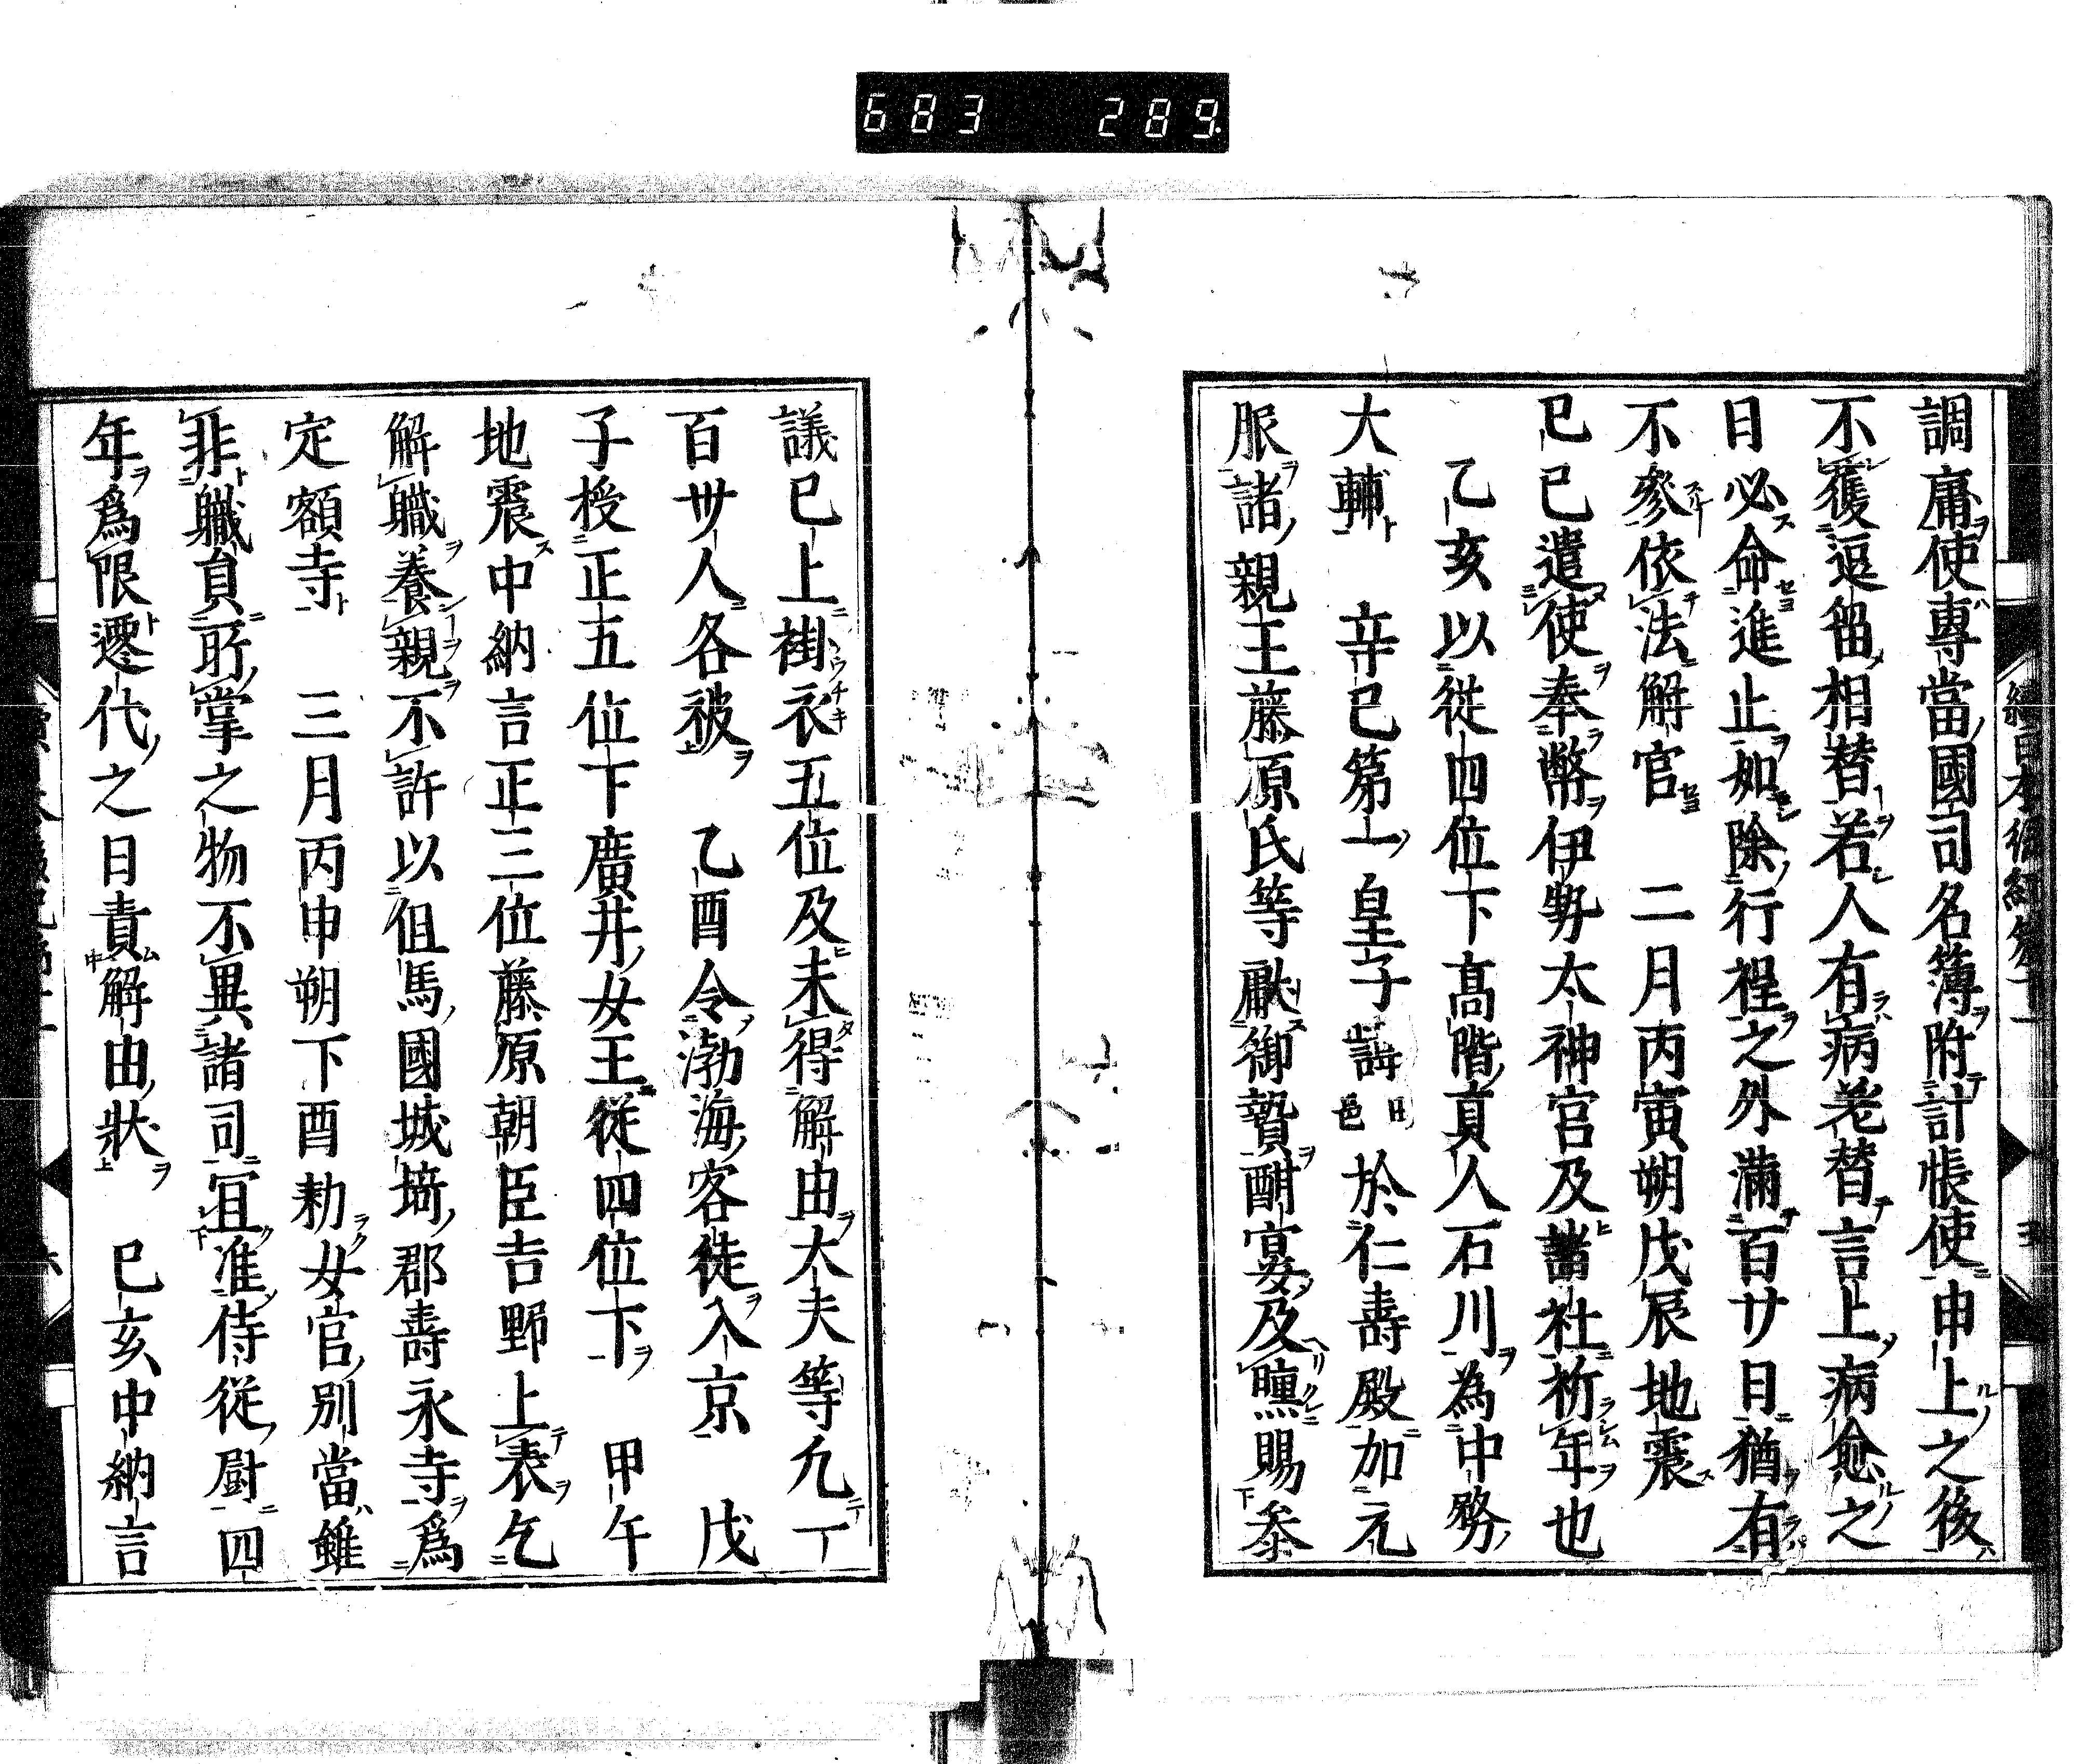 683 289
調庸使專當國司名簿附計帳使申上之後
不獲逗留相替若人有病老替言上病愈之
日必命進止如除行程之外滿百廿日猶有
不參依法解官 二月丙寅朔戊辰地震
巳巳遣使奉幣伊勢太神宮及諸社祈年也
乙亥以從四位下髙階真人石川為中務
大輔 辛巳第一皇子諱田邑於仁壽殿加元
服諸親王藤原氏等獻御贄酣宴及曛賜叅
議巳上褂衣五位及未得解由大夫等凡一
百丗人各被 乙酉令渤海客徒入京 戊
子授正五位下廣井女王從四位下 甲午
地震中納言正三位藤原朝臣吉野上表乞
解職養親不許以但馬國城埼郡壽永寺爲
定額寺 三月丙申朔丁酉勅女官別當雖
非職員所掌之物不異諸司宜准侍從厨四
年爲限遷代之日責解由狀 巳亥中納言